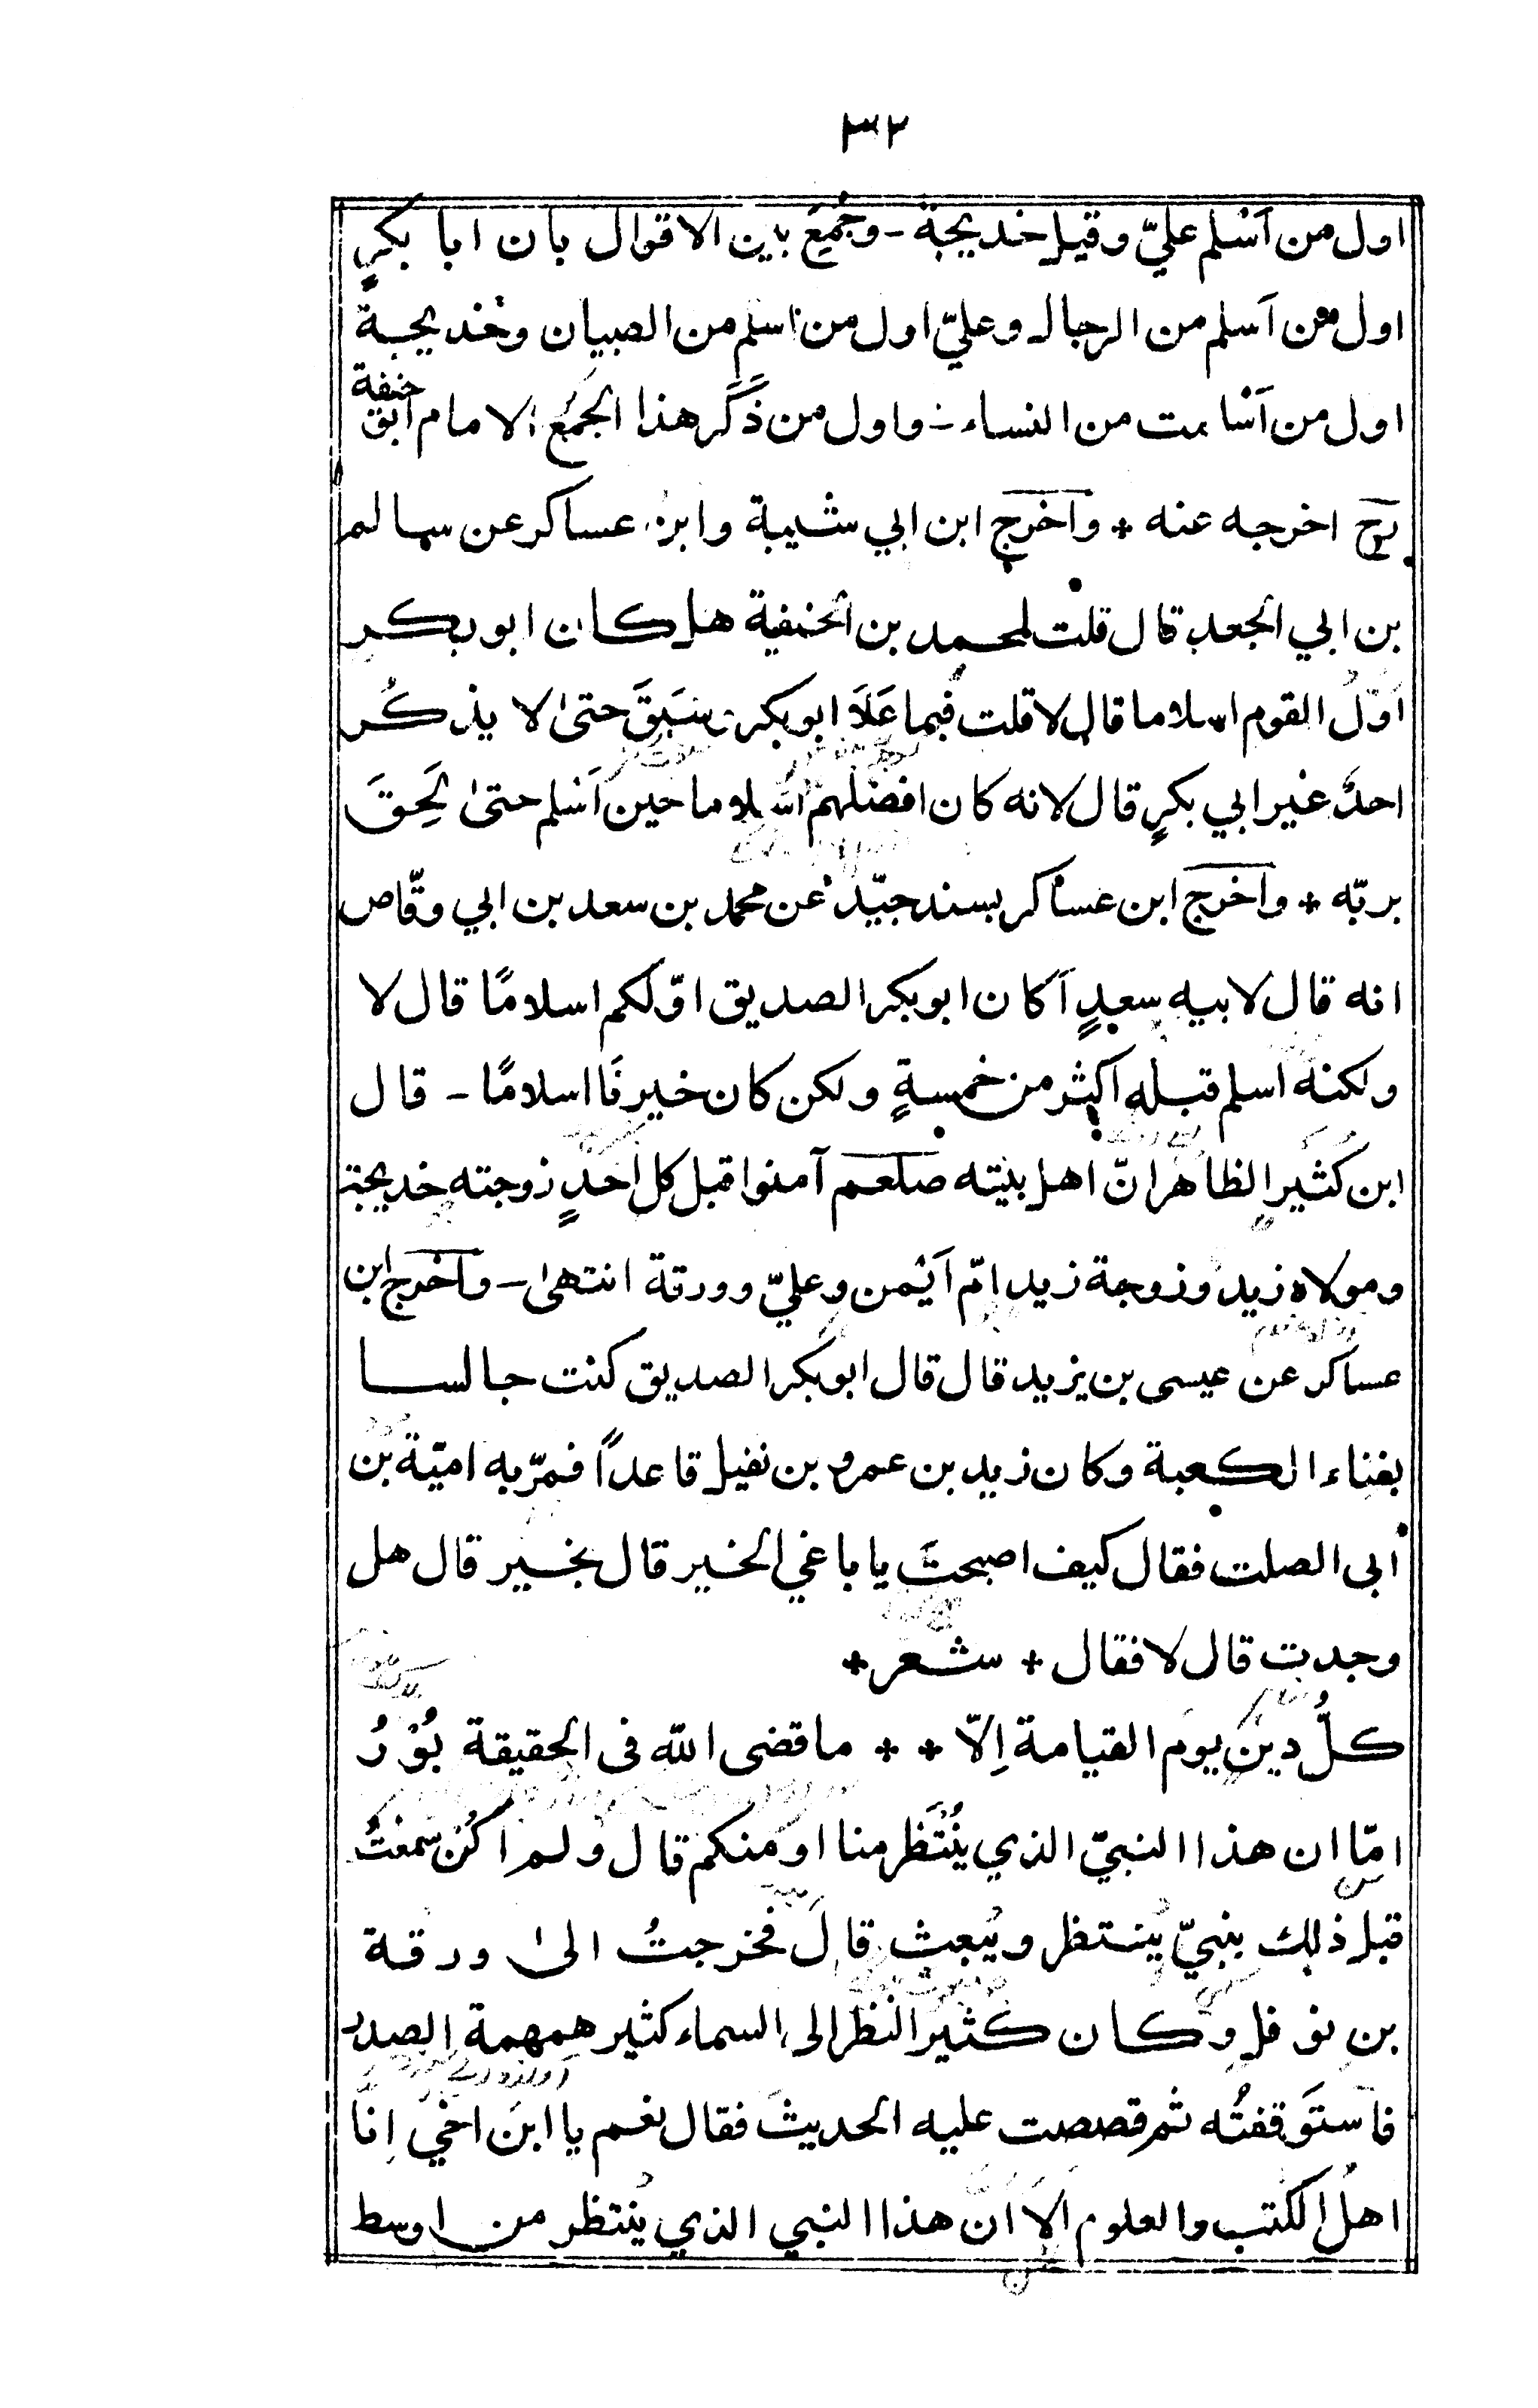 ٣٢
اول من اَسْلم عليّ وقيل خديجة - وجُمِعَ بين الاقوال بان ابا بكرٍ
اول من اَسلم من الرجال وعليّ اول من اسلم من الصبيان وخديجة
اول من اَسْلمت من النساء - واول من ذَكَر هذا الجمع الامام ابو حنيفة
رح اخرجه عنه * واخرج ابن ابي شيبة وابن عساكر عن سالم
بن ابي الجعد قال قلت لمحمد بن الحنفية هل كان ابو بكر
اوّلُ القوم اسلاما قال لا قلت فبما عَلَا ابو بكر وسَبَقَ حتى لا يذكُر
احدٌ غير ابي بكرٍ قال لانه كان افضلهم اسلاما حين اَسْلم حتى لَحِقَ
بربّه * واخرج ابن عساكر بسند جيّد عن محمد بن سعد بن ابي وقّاص
انه قال لابيه سعدٍ اَكان ابو بكر الصديق اوّلكم اسلامًا قال لا
ولكنه اسلم قبله اكثر من خمسةٍ ولكن كان خيرنَا اسلامًا - قال
ابن كثير الظاهر انّ اهل بيته صلعم آمنوا قبل كل احدٍ زوجته خديجة
ومولاه زيد وزوجة زيد امّ اَيْمن وعليّ وورقة انتهى - واخرج ابن
عساكر عن عيسى بن يزيد قال قال ابو بكر الصديق كنت جالسا
بفناء الكعبة وكان زيد بن عمرو بن نفيل قاعداً فمرّ به اميّة بن
ابى الصلت فقال كيف اصبحتَ يا باغي الخير قال بخير قال هل
وجدت قال لا فقال + شعر +
كلُّ دين يوم القيامة اِلّا * * ما قضى الله فى الحقيقة بُوْرُ
امّا ان هذا النبيّ الذي يُنْتَظَر منا او منكم قال ولم اكن سمعتُ
قبل ذلك بنبيّ يُنتظر ويُبعث قال فخرجتُ الى ورقة
بن نوفل وكان كثير النظر الى السماء كثير همهمة الصدر
فاستَوقفتُه ثم قصصت عليه الحديث فقال نعم يا ابنَ اخي اِنا
اهل الكتب والعلوم اَلا ان هذا النبي الذي يُنتظر من اوسط